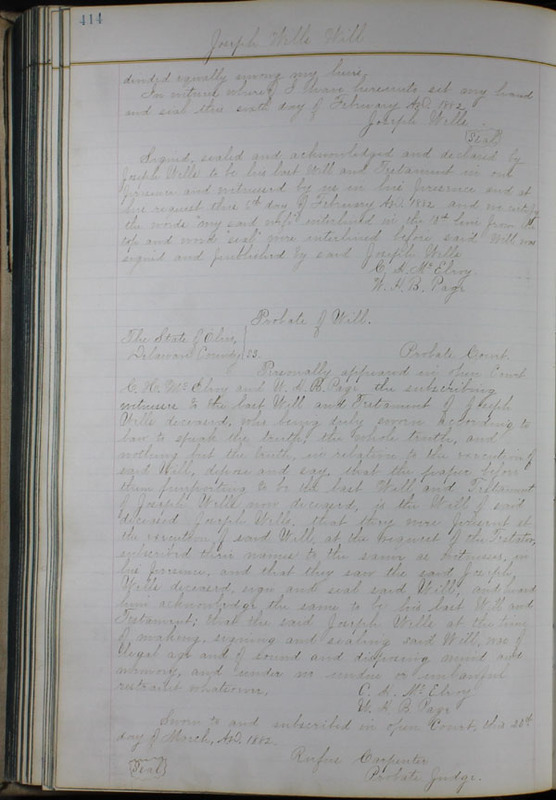 414
Joseph Wells Will
divided equally among my heirs.
In witness whereof I have hereunto set my hand
and seal this sixth day of February A.D. 1882.
Joseph Wells
Seal
Signed, sealed and acknowledged and declared by
Joseph Wells to be his last Will and Testament in our
presence and witnessed by us in his presence and at
his request this 6th day of February A.D. 1882 and we certify
the words "my said wife" interlined in the line from
top and word "seal" were interlined before said Will was
signed and published by said Joseph Wells
C. H. McElroy
W. H. B. Page
Probate of Will.
The State of Ohio,
Delaware County SS. Probate Court.
Personally appeared in open Court
C. H. McElroy and W. H. B. Page the subscribing
witnesses to the last Will and Testament of Joseph
Wells deceased, who being duly sworn according to
law to speak the truth, the whole truth, and
nothing but the truth, in relation to the execution of
said Will, depose and say, that the paper before
them purporting to be the last Will and Testament
of Joseph Wells now deceased, is the Will of said
deceased Joseph Wells, that they were present at
the execution of said Will, at the request of the Testator,
subscribed their names to the same as witnesses, in
his presence, and that they saw the said Joseph
Wells deceased, sign and seal said Will, and heard
him acknowledge the same to be his last Will and
Testament; that the said Joseph Wells at the time
of making, signing and sealing said Will, was of
legal age and of sound and disposing mind and
memory, and under no undue or unlawful
restraint whatsoever.
C. H. McElroy
W. H. B. Page
Sworn to and subscribed in open Court, this 28th
day of March, A.D. 1882.
Rufus Carpenter
Seal
Probate Judge.